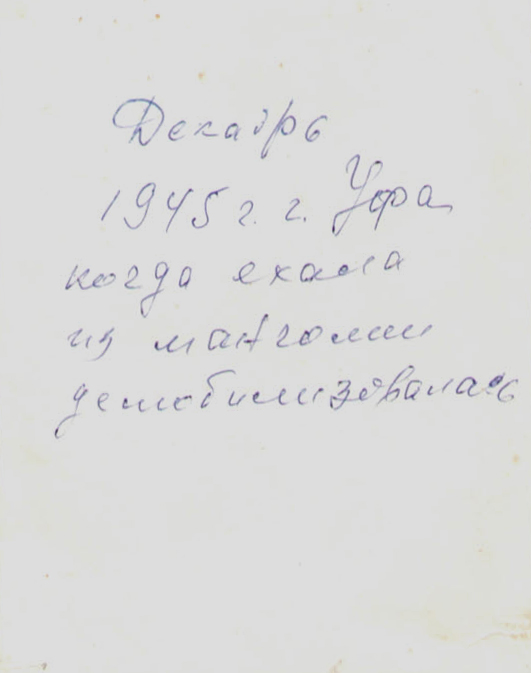 Декабрь
1945 г. г. Уфа
когда ехала
из манголии
демобилизовалась